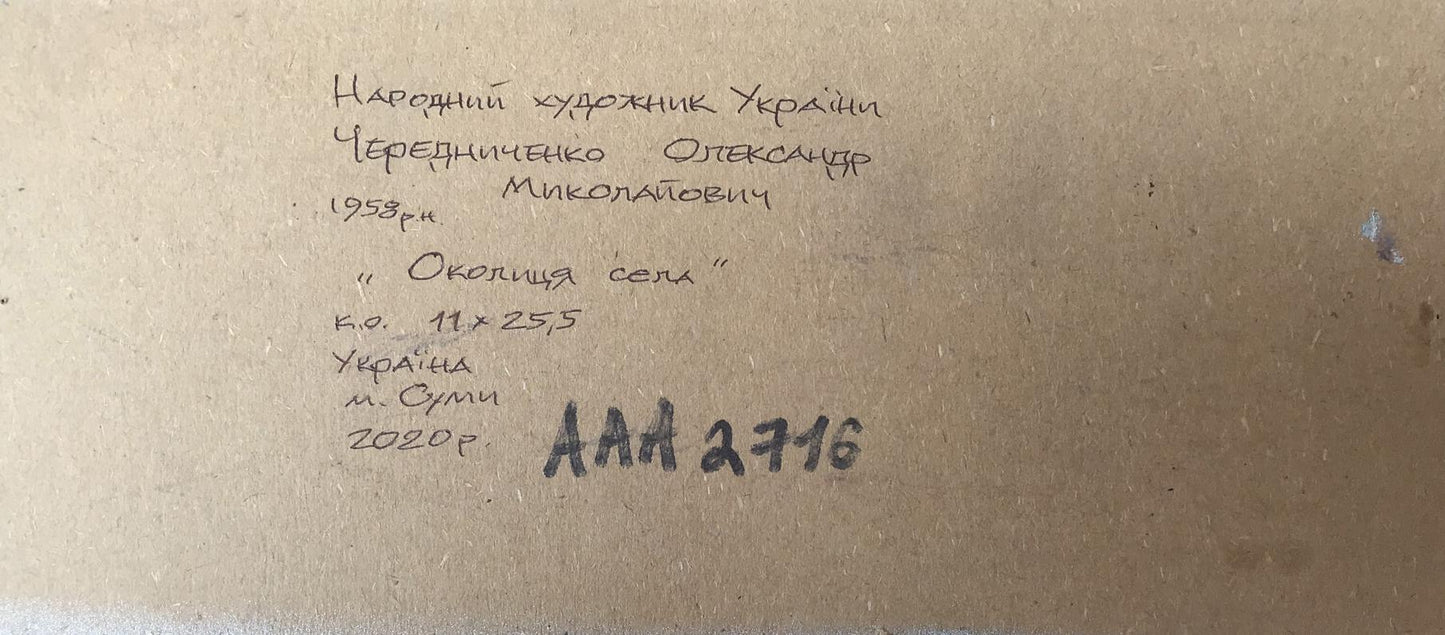 Народний художник України
Чередниченко Олександр
Миколайович
1958р.н.
„ Околиця села “
к.о. 11 х 25,5
Україна
м. Суми
2020р.
ААА 2716